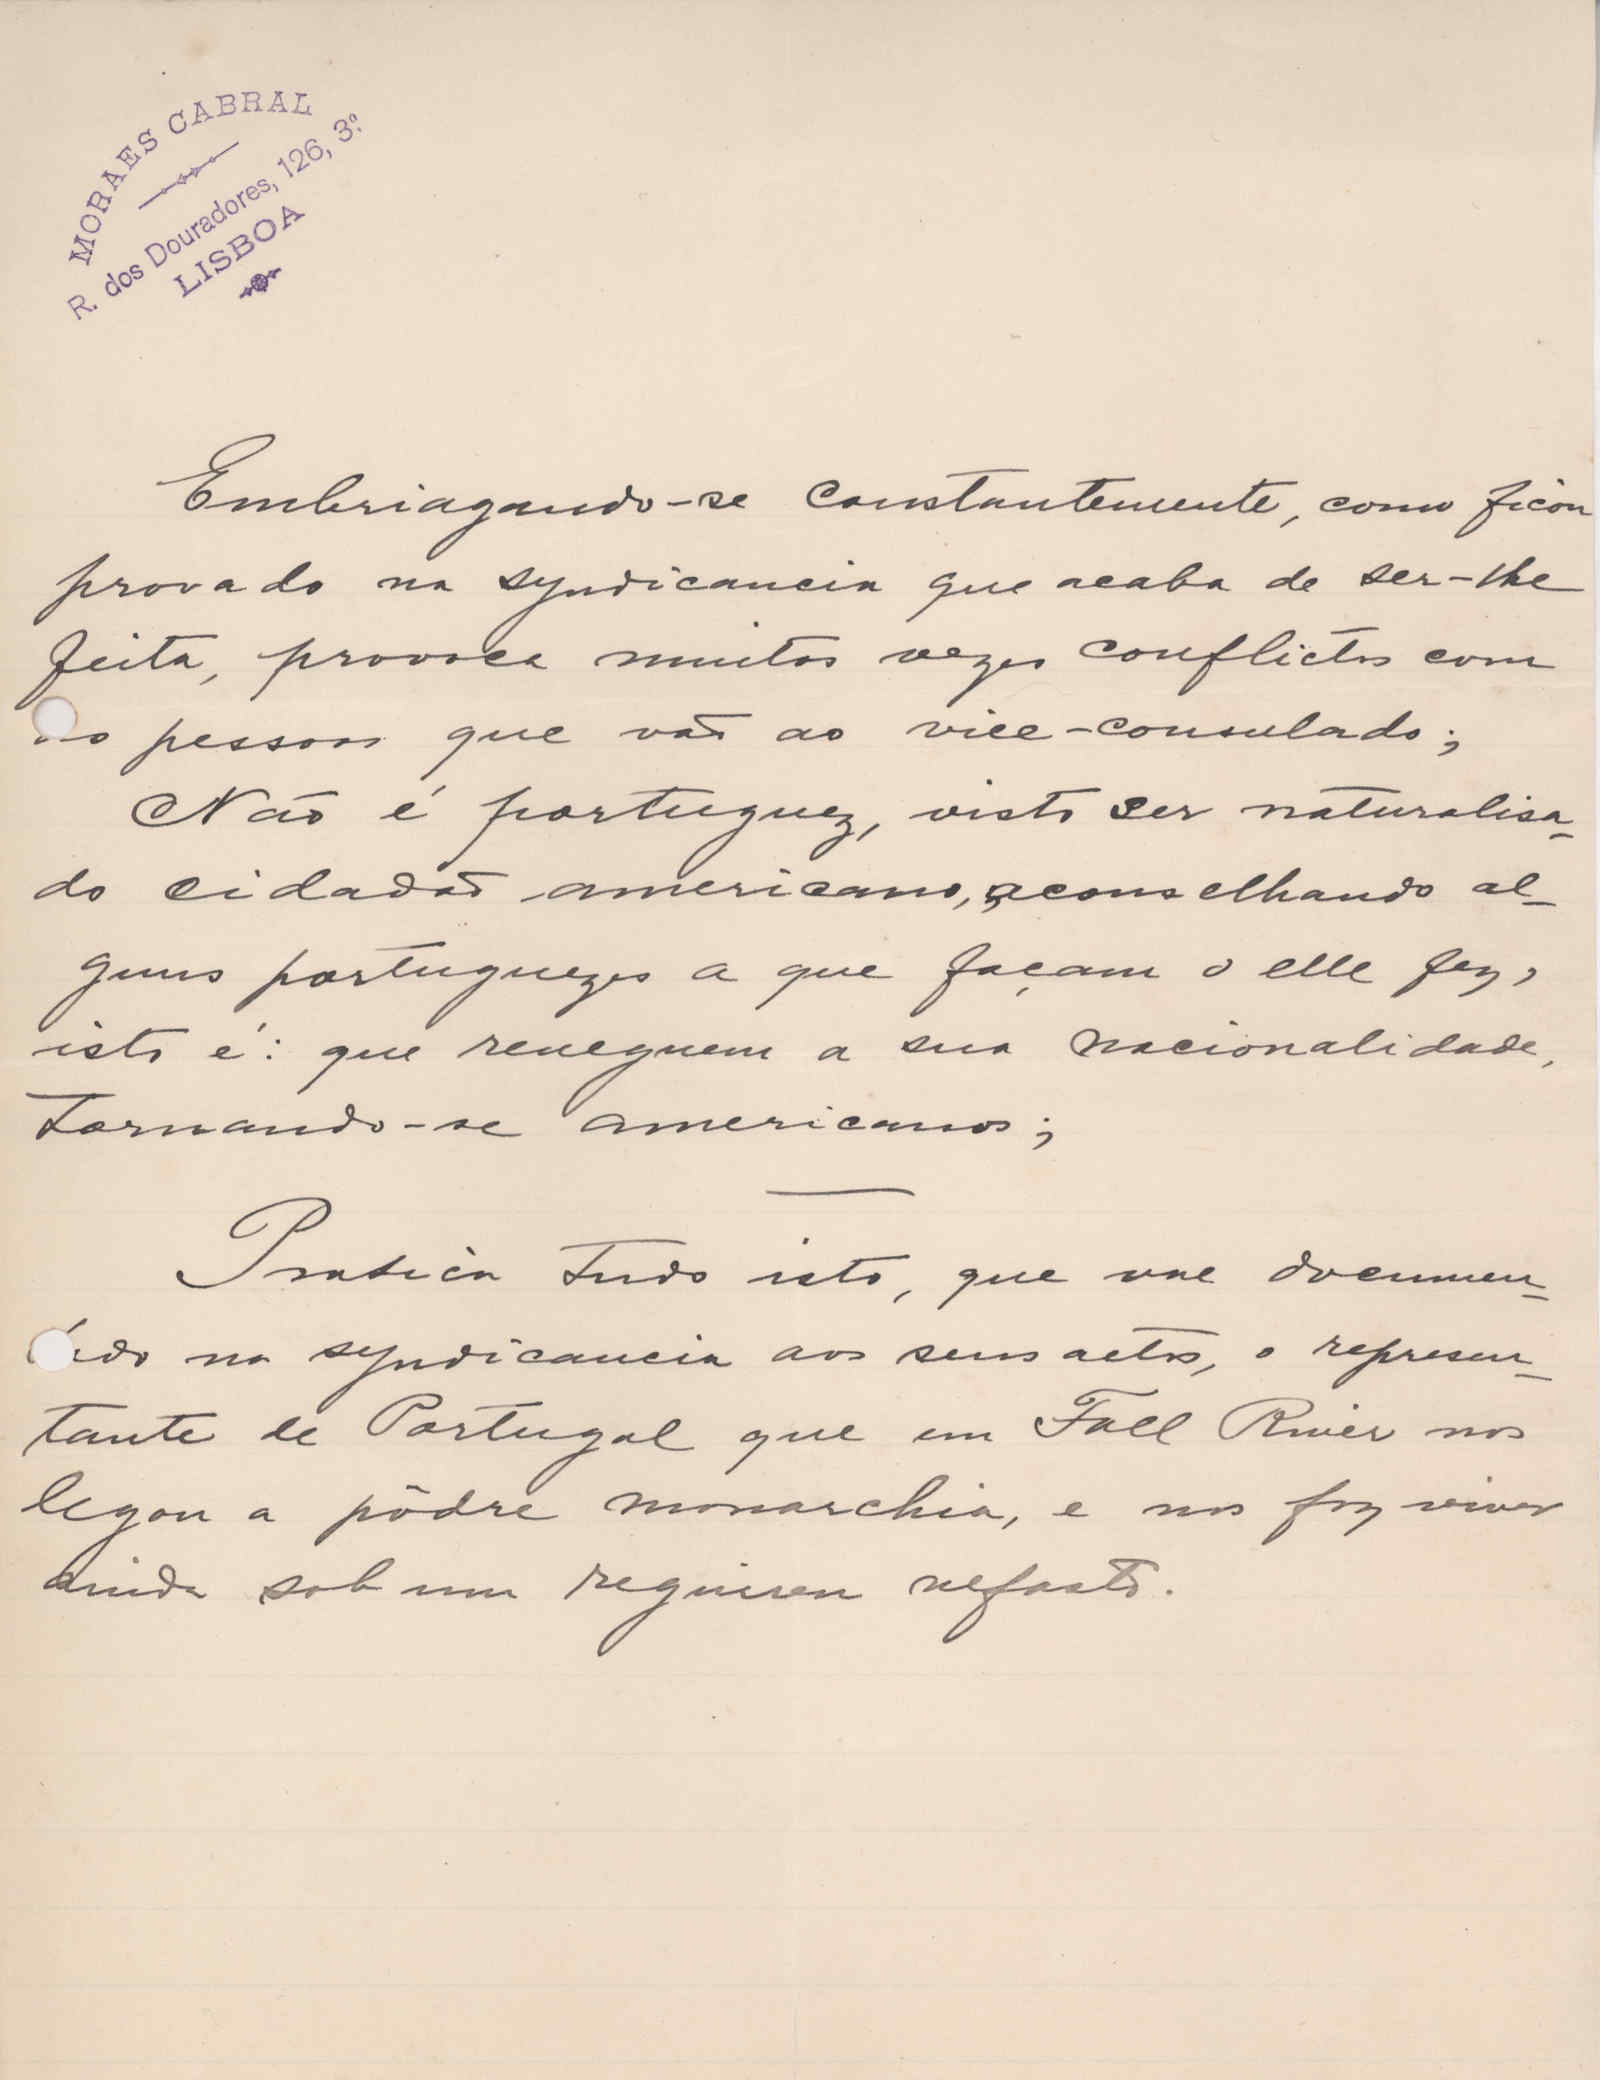 MORAES CABRAL
R. dos Douradores, 126, 3.º
LISBOA
Embriagando-se constantemente, como ficou
provado na syndicancia que acaba de ser-lhe
feita, provoca muitas vezes conflictos com
as pessoas que vão ao vice-consulado;
Não é portuguez, visto ser naturalisa-
do cidadão americano, aconselhando al-
guns portuguezes a que façam o elle fez,
isto é: que reneguem a sua nacionalidade,
tornando-se americanos;
Pratíca tudo isto, que vae documen-
tado na syndicancia aos seus actos, o represen-
tante de Portugal que em Fall River nos
legou a pôdre monarchia, e nos faz viver
ainda sob um regimen nefasto.